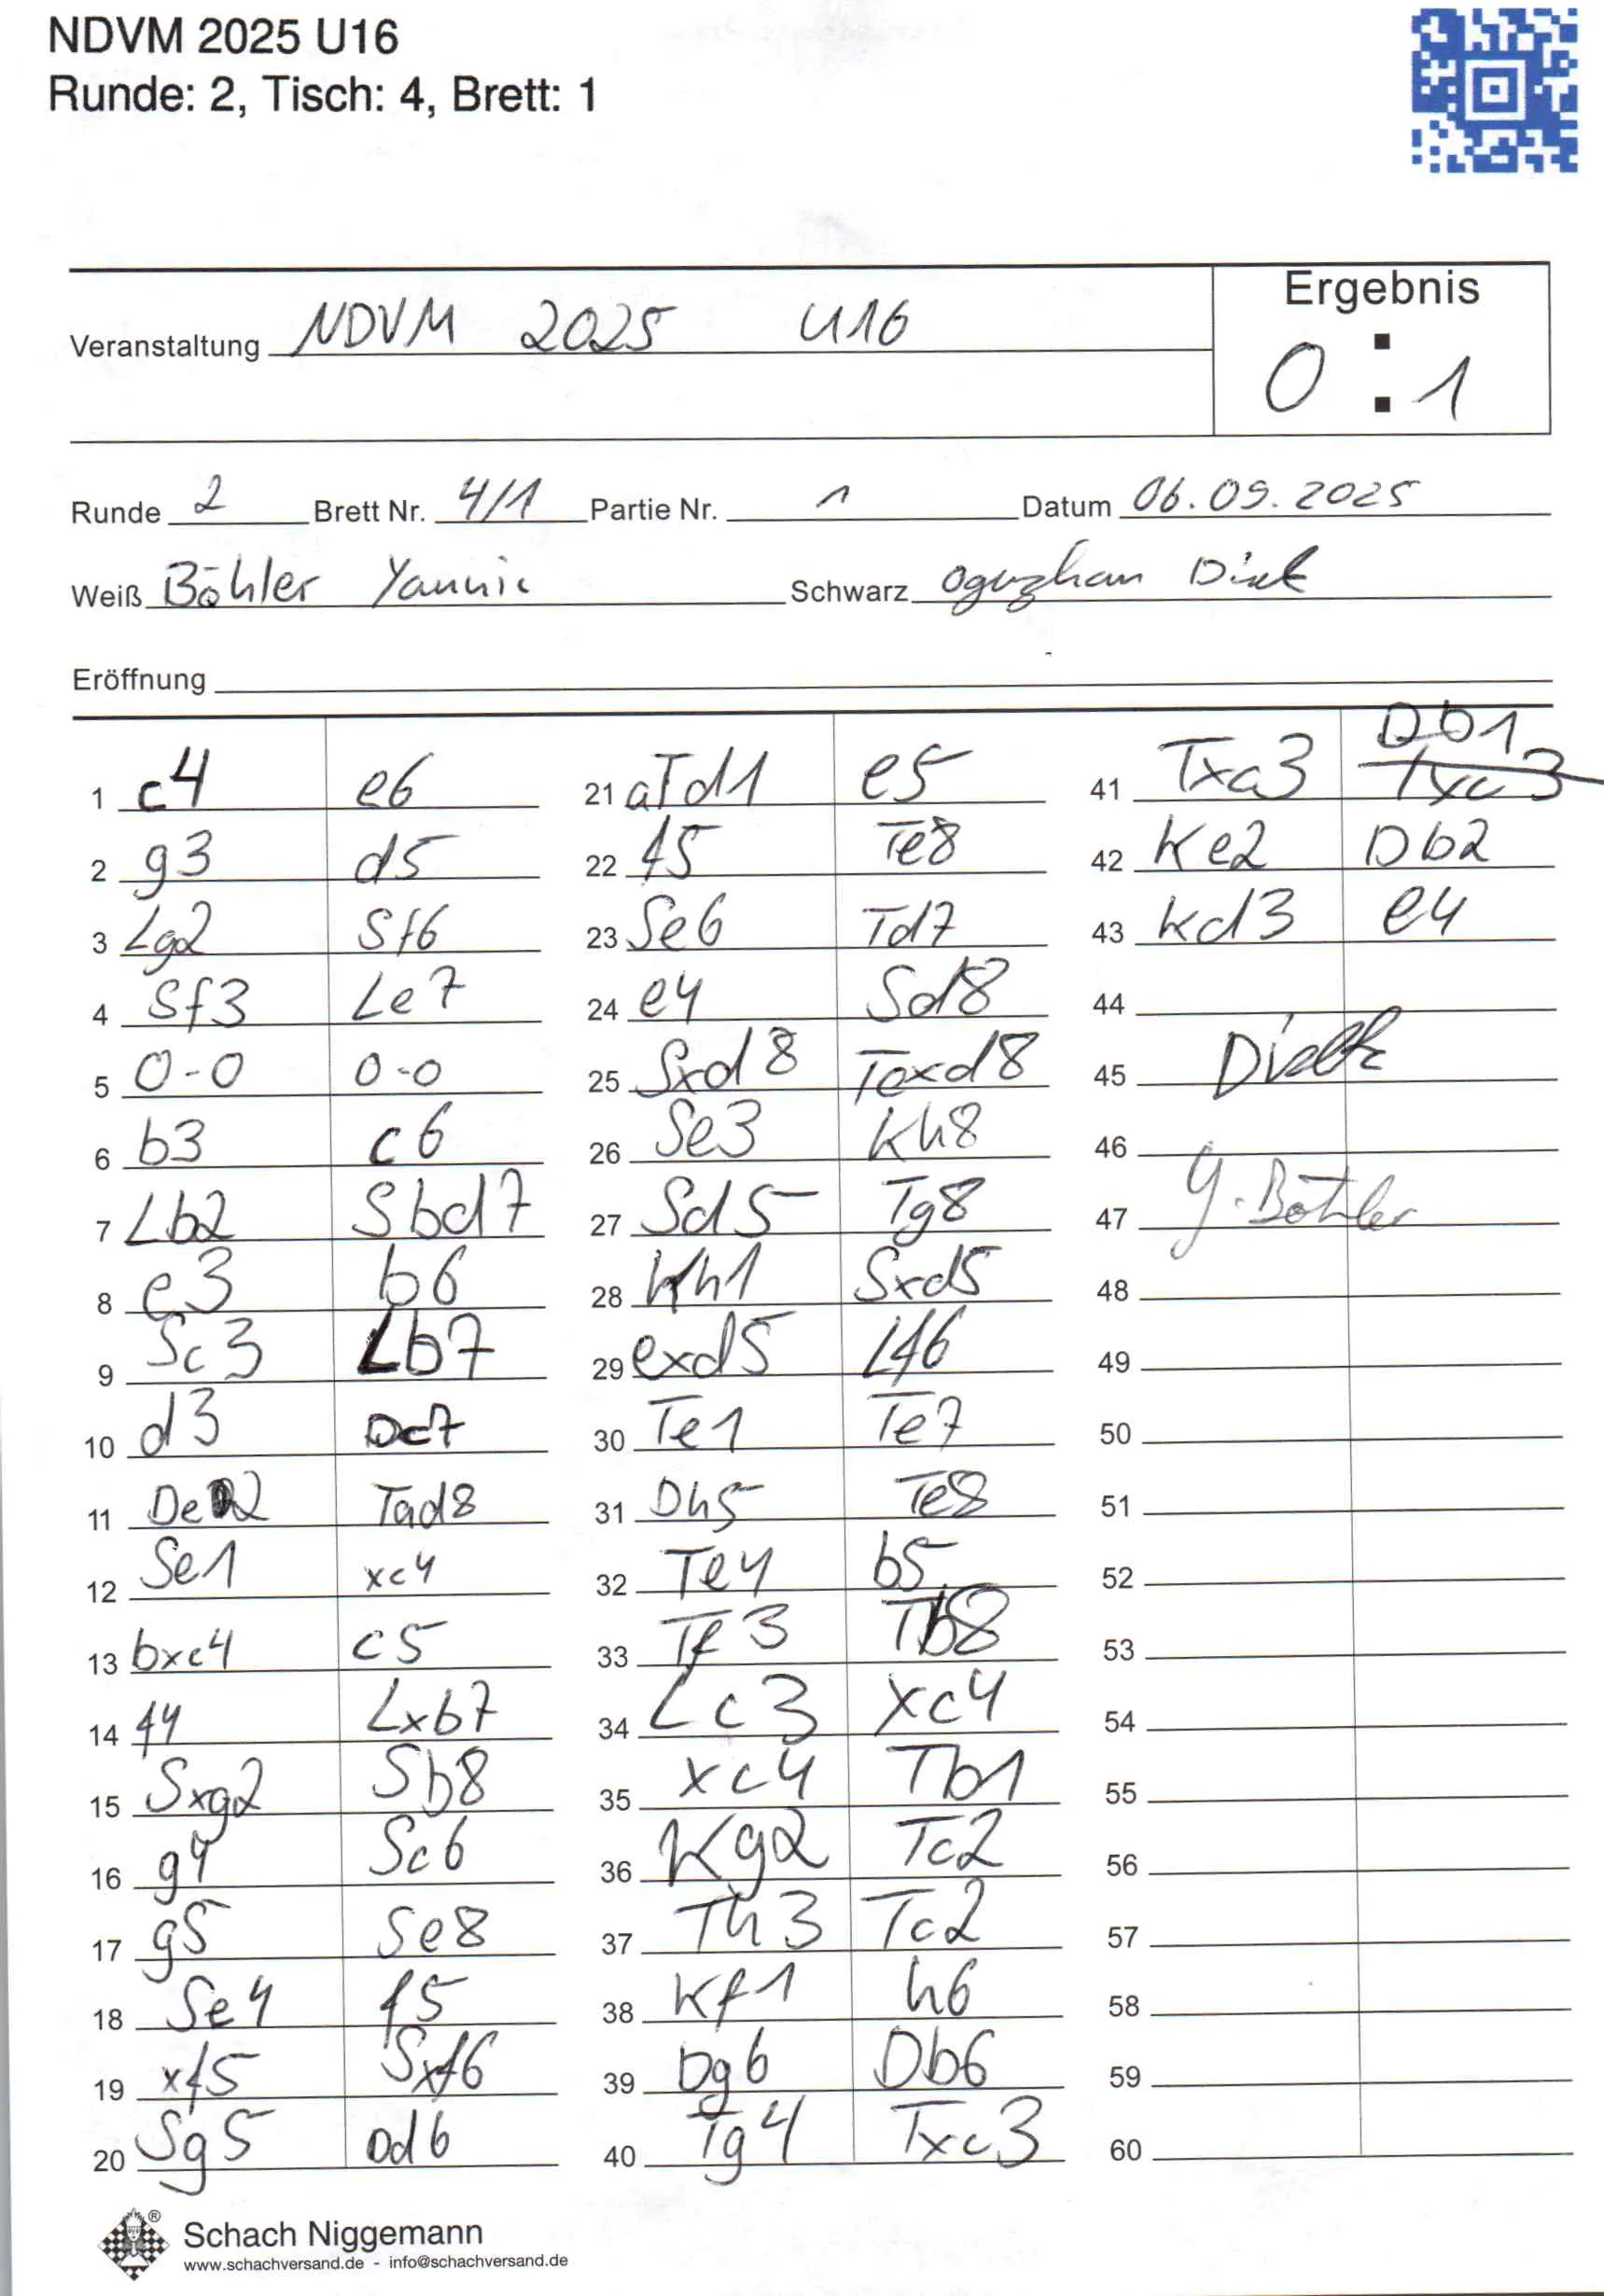 NDVM 2025 U16
Runde: 2, Tisch: 4, Brett: 1
Ergebnis
Veranstaltung NDVM 2025 U16
0 : 1
Runde 2 Brett Nr. 4/1 Partie Nr. 1 Datum 06.09.2025
Weiß Böhler Yannic Schwarz Oguzhan
Eröffnung
1 c4 e6
2 g3 d5
3 Lg2 Sf6
4 Sf3 Le7
5 0-0 0-0
6 b3 c6
7 Lb2 Sbd7
8 e3 b6
9 Sc3 Lb7
10 d3 Dc7
11 De2 Tad8
12 Se1 xc4
13 bxc4 c5
14 f4 Lxb7
15 Sxg2 Sb8
16 g4 Sc6
17 g5 Se8
18 Se4 f5
19 xf5 Sxf6
20 Sg5 Dd6
21 aTd1 e5
22 f5 Te8
23 Se6 Td7
24 e4 Sd8
25 Sxd8 Texd8
26 Se3 Kh8
27 Sd5 Tg8
28 Kh1 Sxd5
29 exd5 Lf6
30 Te1 Te7
31 Dh5 Te8
32 Te4 b5
33 Te3 Tb8
34 Lc3 xc4
35 xc4 Tb1
36 Kg2 Tc2
37 Th3 Tc2
38 Kf1 h6
39 Dg6 Db6
40 Tg4 Txc3
41 Txc3 Db1 Txc3
42 Ke2 Db2
43 Kd3 e4
44
45
46
47 Y. Böhler
48
49
50
51
52
53
54
55
56
57
58
59
60
Schach Niggemann
www.schachversand.de - info@schachversand.de